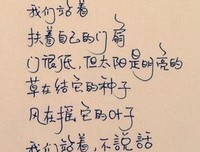 我们站着
扶着自己的门窗
门很低，但太阳是明亮的
草在结它的种子
风在摇它的叶子
我们站着，不说话